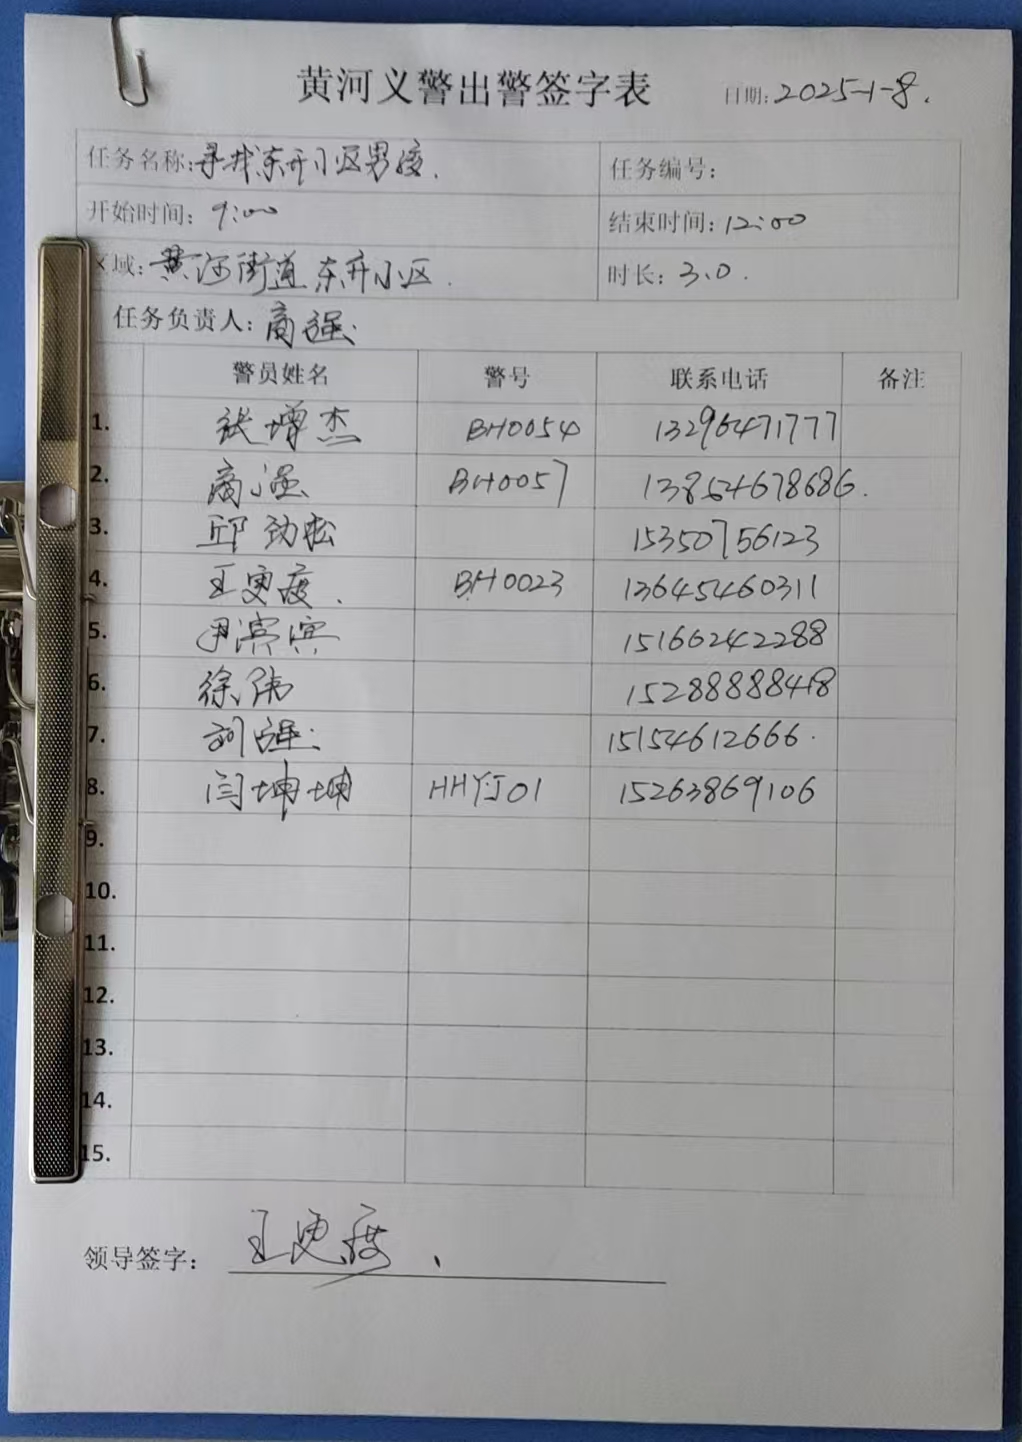 黄河义警出警签字表 日期:2025-1-8.
任务名称:寻找东升小区男孩. 任务编号:
开始时间: 9:00 结束时间: 12:00
区域: 黄河街道东升小区. 时长: 3.0.
任务负责人: 商强
警员姓名 警号 联系电话 备注
1. 张增杰 BH0054 13296471777
2. 商强 BH0057 13854678686.
3. 邱劲松 15350756123
4. 王更度. BH0023 13645460311
5. 尹滨滨 15166242288
6. 徐伟 15288888418
7. 刘强 15154612666.
8. 闫坤坤 HHYJ01 15263869106
9.
10.
11.
12.
13.
14.
15.
领导签字: 王更度.